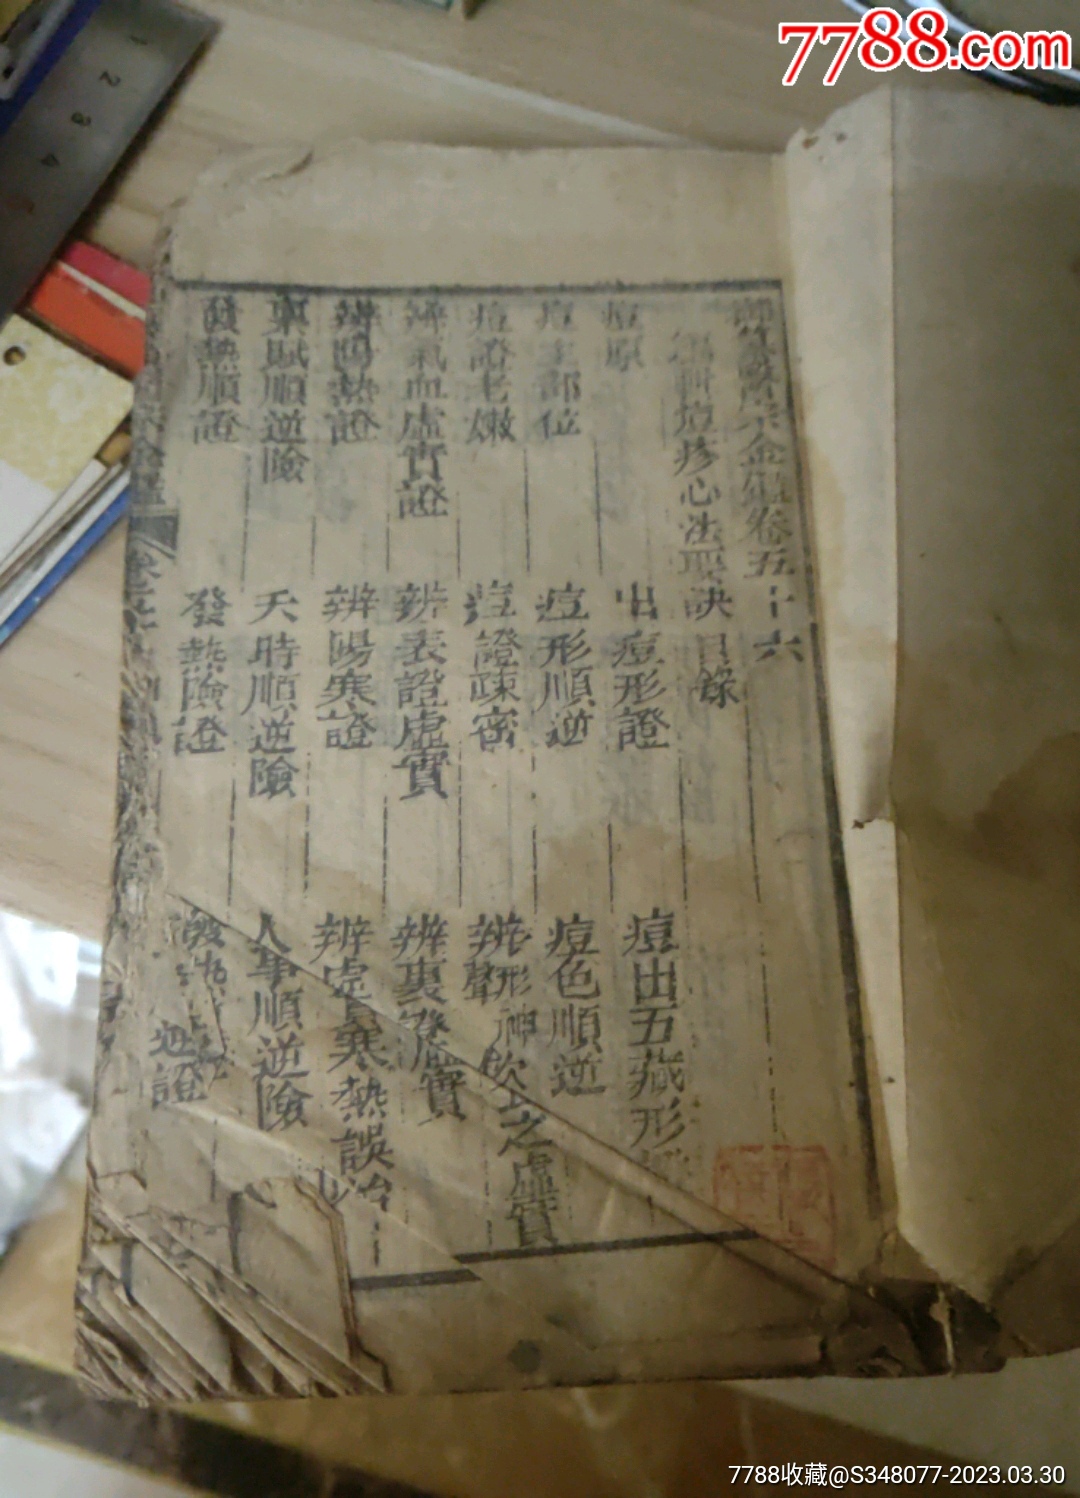 7788.com
御纂醫宗金鑑卷五十六
編輯痘疹心法要訣目錄
痘原
出痘形證
痘出五藏形
痘主部位
痘形順逆
痘色順逆
痘證老嫩
痘證疎密
辨形神飲食之虛實
聲
辨氣血虛實證
辨表證虛實
辨裏證虛實
辨陽熱證
辨陽寒證
辨虛實寒熱誤治
稟賦順逆險
天時順逆險
人事順逆險
發熱順證
發熱險證
發熱 證
1
2
3
4
7788收藏@S348077-2023.03.30